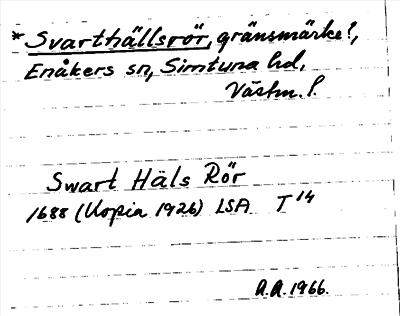 * Svarthällsrör, gränsmärke?,
Enåkers sn, Simtuna hd,
Västm. l.
Swart Häls Rör
1688 (Kopia 1926) LSA T 14
A.A. 1966.